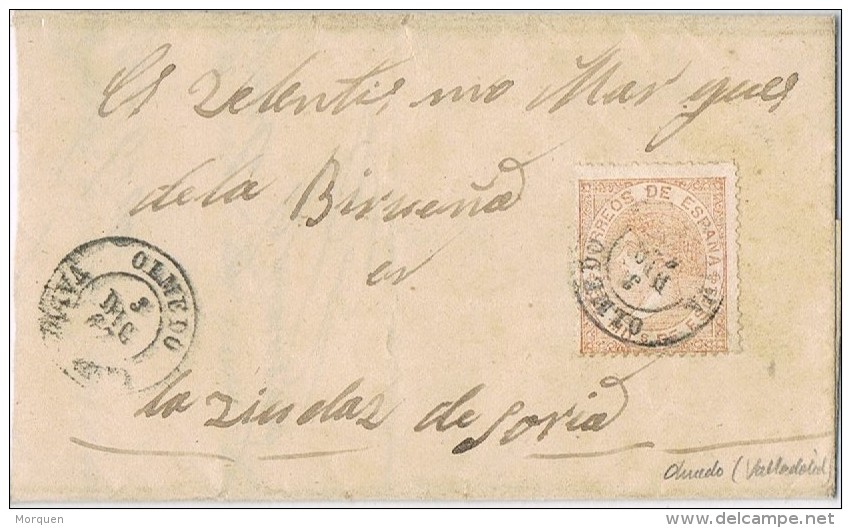 El Zelentisimo Marques
de la Birueña
en
la ziudaz de Soria
CORREOS DE ESPAÑA
OLMEDO
3
DIC
OLMEDO
3
DIC
Olmedo (Valladolid)
Morquen
www.delcampe.net